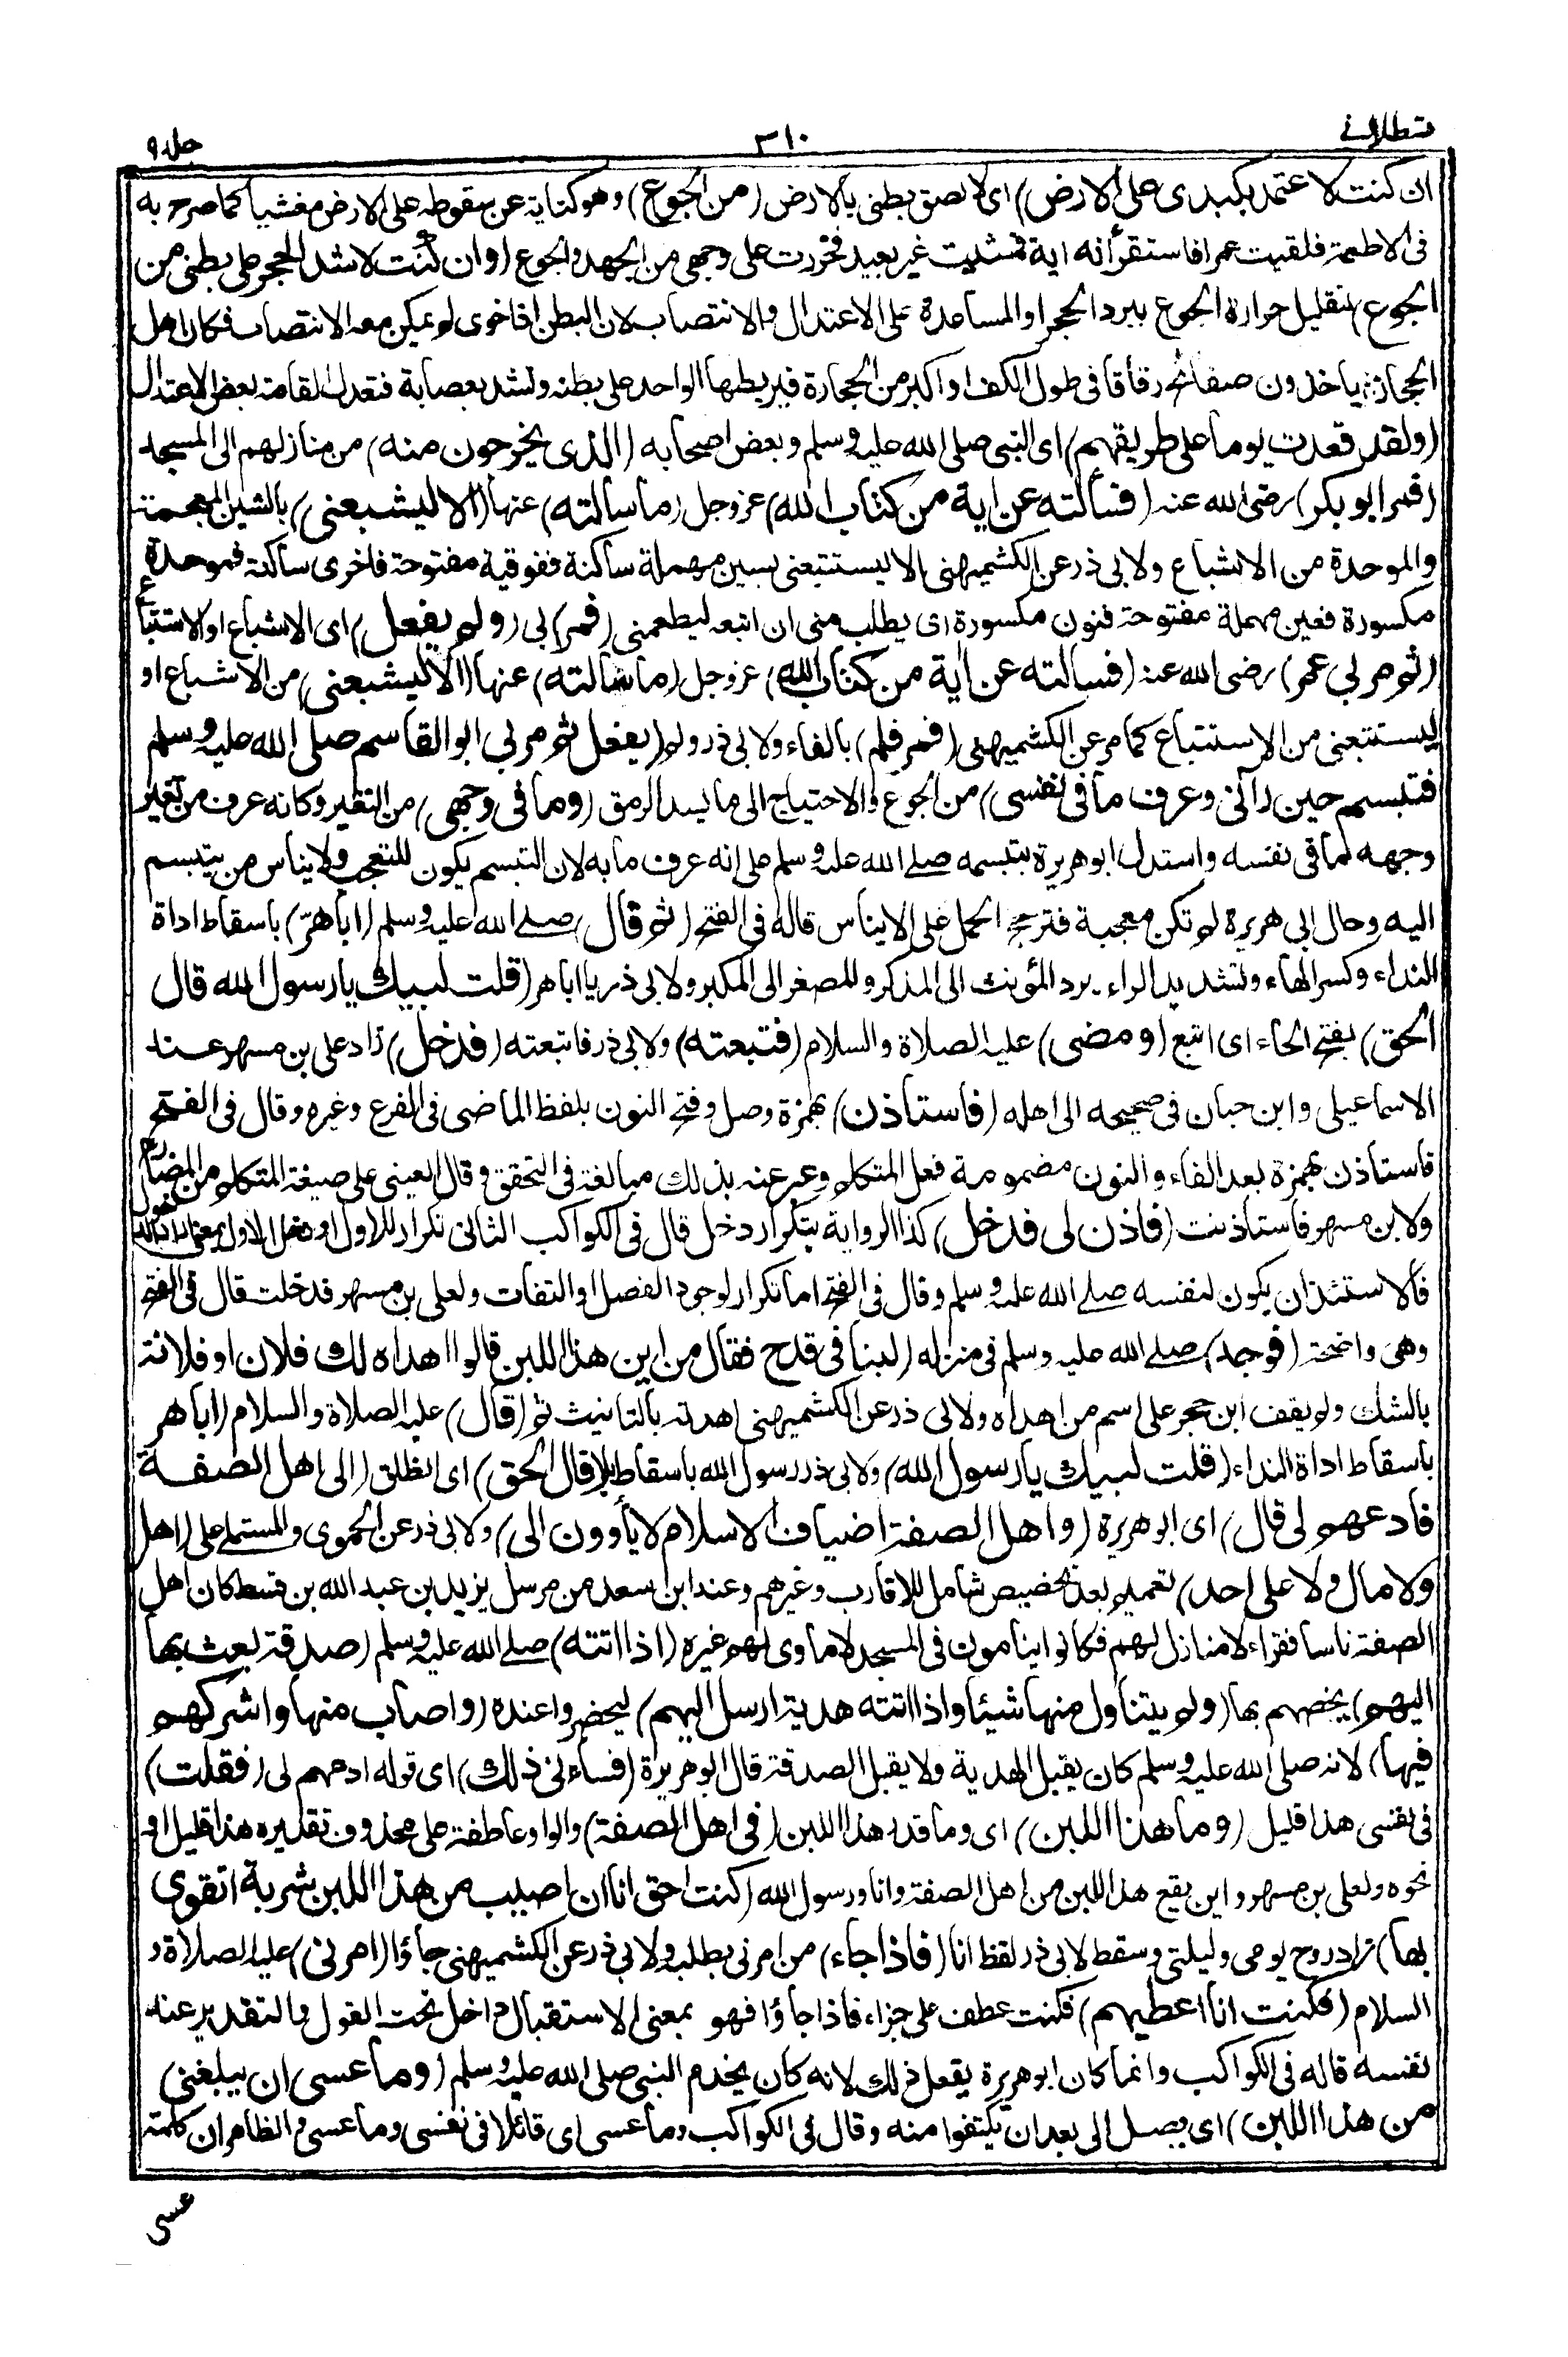 قسطلانے
٣١٠
جلد ٩
ان كنت لاعتمد بكبدى على الارض) اى لالصق بطنى بالارض (من الجوع) وهو كناية عن سقوطه على الارض مغشيا كما صرح به
فى الاطعمة فلقيت عمر فاستقرأته اية فمشيت غير بعيد فخررت على وجهى من الجهد والجوع (وان كنت لاشد الحجر على بطنى من
الجوع) لتقليل حرارة الجوع ببرد الحجر او المساعدة على الاعتدال والانتصاب لان البطن اذا خوى لم يمكن معه الانتصاب فكان اهل
الحجاز ياخذون صفائح رقاقا فى طول الكف او اكبر من الحجارة فيربطها الواحد على بطنه وتشد بعصابة فتعدل القامة بعض الاعتدال
(ولقد قعدت يوما على طريقهم) اى النبى صلى الله عليه وسلم وبعض اصحابه (الذى يخرجون منه) من منازلهم الى المسجد
(فمر ابو بكر) رضى الله عنه (فسألته عن اية من كتاب الله) عز وجل (ما سالته) عنها (الا ليشبعنى) بالشين المعجمة
والموحدة من الاشباع ولابى ذر عن الكشميهنى الا ليستتبعنى بسين مهملة ساكنة ففوقية مفتوحة فاخرى ساكنة فموحدة
مكسورة فعين مهملة مفتوحة فنون مكسورة اى يطلب منى ان اتبعه ليطعمنى (فمر) بى (ولم يفعل) اى الاشباع او الاستتباع
(ثم مر بى عمر) رضى الله عنه (فسالته عن اية من كتاب الله) عز وجل (ما سالته) عنها (الا ليشبعنى) من الاشباع او
ليستتبعنى من الاستتباع كما مر عن الكشميهنى (فمر فلم) بالفاء ولابى ذر ولم (يفعل ثم مر بى ابو القاسم صلى الله عليه وسلم
فتبسم حين رآنى وعرف ما فى نفسى) من الجوع والاحتياج الى ما يسد الرمق (وما فى وجهى) من التغير وكانه عرف من تغير
وجهه لما فى نفسه واستدل ابو هريرة بتبسمه صلے الله عليه وسلم على انه عرف ما به لان التبسم يكون للتعجب ولايناس من يتبسم
اليه وحال ابى هريرة لم تكن معجبة فترجح الحمل على الايناس قاله فى الفتح (ثم قال) صلے الله عليه وسلم (اباهرّ) باسقاط اداة
النداء وكسر الهاء وتشديد الراء يرد المؤنث الى المذكر والمصغر الى المكبر ولابى ذر يا اباهر (قلت لبيك يا رسول الله قال
الحق) بفتح الحاء اى اتبع (ومضى) عليه الصلاة والسلام (فتبعته) ولابى ذر فاتبعته (فدخل) زاد على بن مسهر عند
الاسماعيلى وابن حبان فى صحيحه الى اهله (فاستاذن) بهمزة وصل وفتح النون بلفظ الماضى فى الفرع وغيره وقال فى الفتح
فاستاذن بهمزة بعد الفاء والنون مضمومة فعل المتكلم وعبر عنه بذلك مبالغة فى التحقق وقال العينى على صيغة المتكلم من المضارع
ولابن مسهر فاستاذنت (فاذن لى فدخل) كذا الرواية بتكرار دخل قال فى الكواكب الثانى تكرار للاول او دخل الاول بمعنى اراد الدخول
فالاستئذان يكون لنفسه صلے الله عليه وسلم وقال فى الفتح اما تكرار لوجود الفصل او التفات ولعلى بن مسهر فدخلت قال فى الفتح
وهى واضحة (فوجد) صلے الله عليه وسلم فى منزله (لبنا فى قدح فقال من اين هذا اللبن قالوا اهداه لك فلان او فلانة
بالشك ولم يقف ابن حجر على اسم من اهداه ولابى ذر عن الكشميهنى اهدته بالتانيث ثم (قال) عليه الصلاة والسلام (اباهر
باسقاط اداة النداء (قلت لبيك يا رسول الله) ولابى ذر رسول الله باسقاط يا (قال الحق) اى انطلق (الى اهل الصفة
فادعهم لى قال) اى ابو هريرة (واهل الصفة اضياف الاسلام لا يأوون الى) ولابى ذر عن الحموى والمستملے على (اهل
ولا مال ولا على احد) تعميم بعد تخصيص شامل للاقارب وغيرهم وعند ابن سعد من مرسل يزيد بن عبد الله بن قسط كان اهل
الصفة ناسا فقراء لا منازل لهم فكانوا ينامون فى المسجد لا ماوى لهم غيره (اذا اتته) صلے الله عليه وسلم (صدقة بعث بها
اليهم) يخصهم بها (ولم يتناول منها شيئا واذا اتته هدية ارسل اليهم) ليحضروا عنده (واصاب منها واشركهم
فيها) لانه صلى الله عليه وسلم كان يقبل الهدية ولا يقبل الصدقة قال ابو هريرة (فساءنى ذلك) اى قوله ادعهم لى (فقلت)
فى نفسى هذا قليل (وما هذا اللبن) اى وما قدر هذا اللبن (فى اهل الصفة) والواو عاطفة على محذوف تقديره هذا قليل او
نحوه ولعلى بن مسهر واين يقع هذا اللبن من اهل الصفة وانا ورسول الله (كنت احق انا ان اصيب من هذا اللبن شربة اتقوى
بها) زاد روح يومى وليلتى وسقط لابى ذر لفظ انا (فاذا جاء) من امرنى بطلبه ولابى ذر عن الكشميهنى جاؤا (امرنى) عليه الصلاة و
السلام (فكنت انا اعطيهم) فكنت عطف على جزاء فاذا جاؤا فهو بمعنى الاستقبال داخل تحت القول والتقدير عند
نفسه قاله فى الكواكب وانما كان ابو هريرة يفعل ذلك لانه كان يخدم النبى صلى الله عليه وسلم (وما عسى ان يبلغنى
من هذا اللبن) اى يصل الى بعد ان يكتفوا منه وقال فى الكواكب وما عسى اى قائلا فى نفسى وما عسى والظاهر ان كلمة
عسى